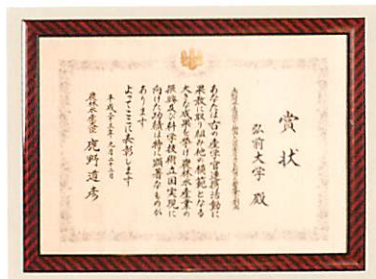 賞状
弘前大学 殿
あなたは右の産学官連携活動に
果敢に取り組み他の模範となる
大きな成果を挙げ農林水産業の
振興及び科学技術立国実現に
向けた功績は特に顕著なものが
あります
よってここに表彰します
農林水産大臣 鹿野道彦